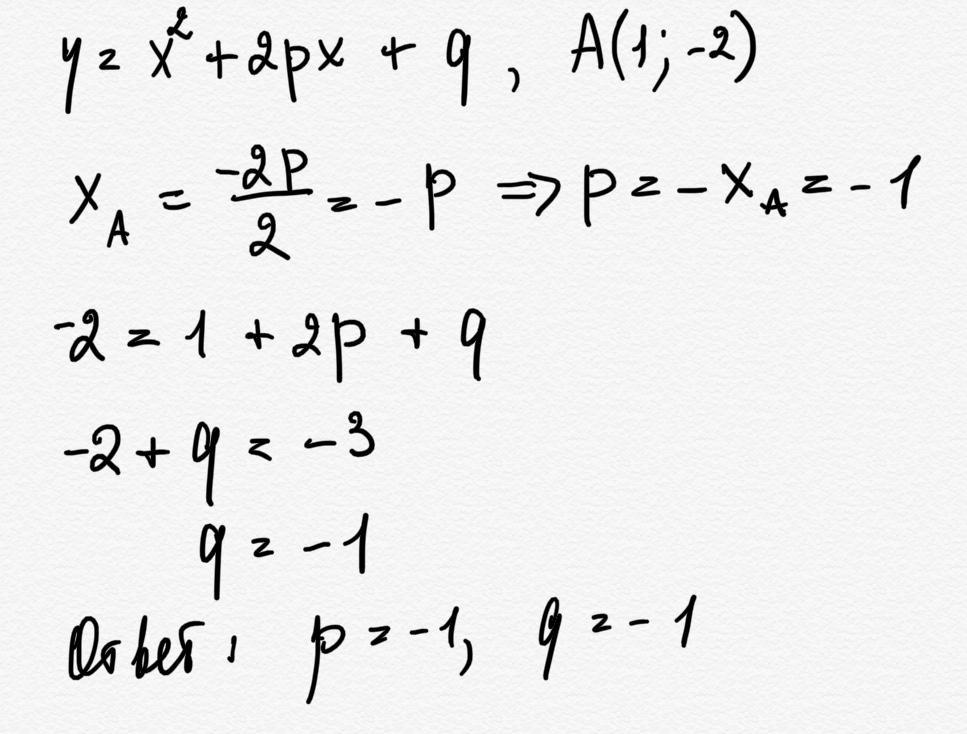 y = x² + 2px + q , A(1; -2)
x_A = -2p/2 = - p ⇒ p = - x_A = - 1
-2 = 1 + 2p + q
-2 + q = - 3
q = - 1
Ответ: p = -1, q = - 1